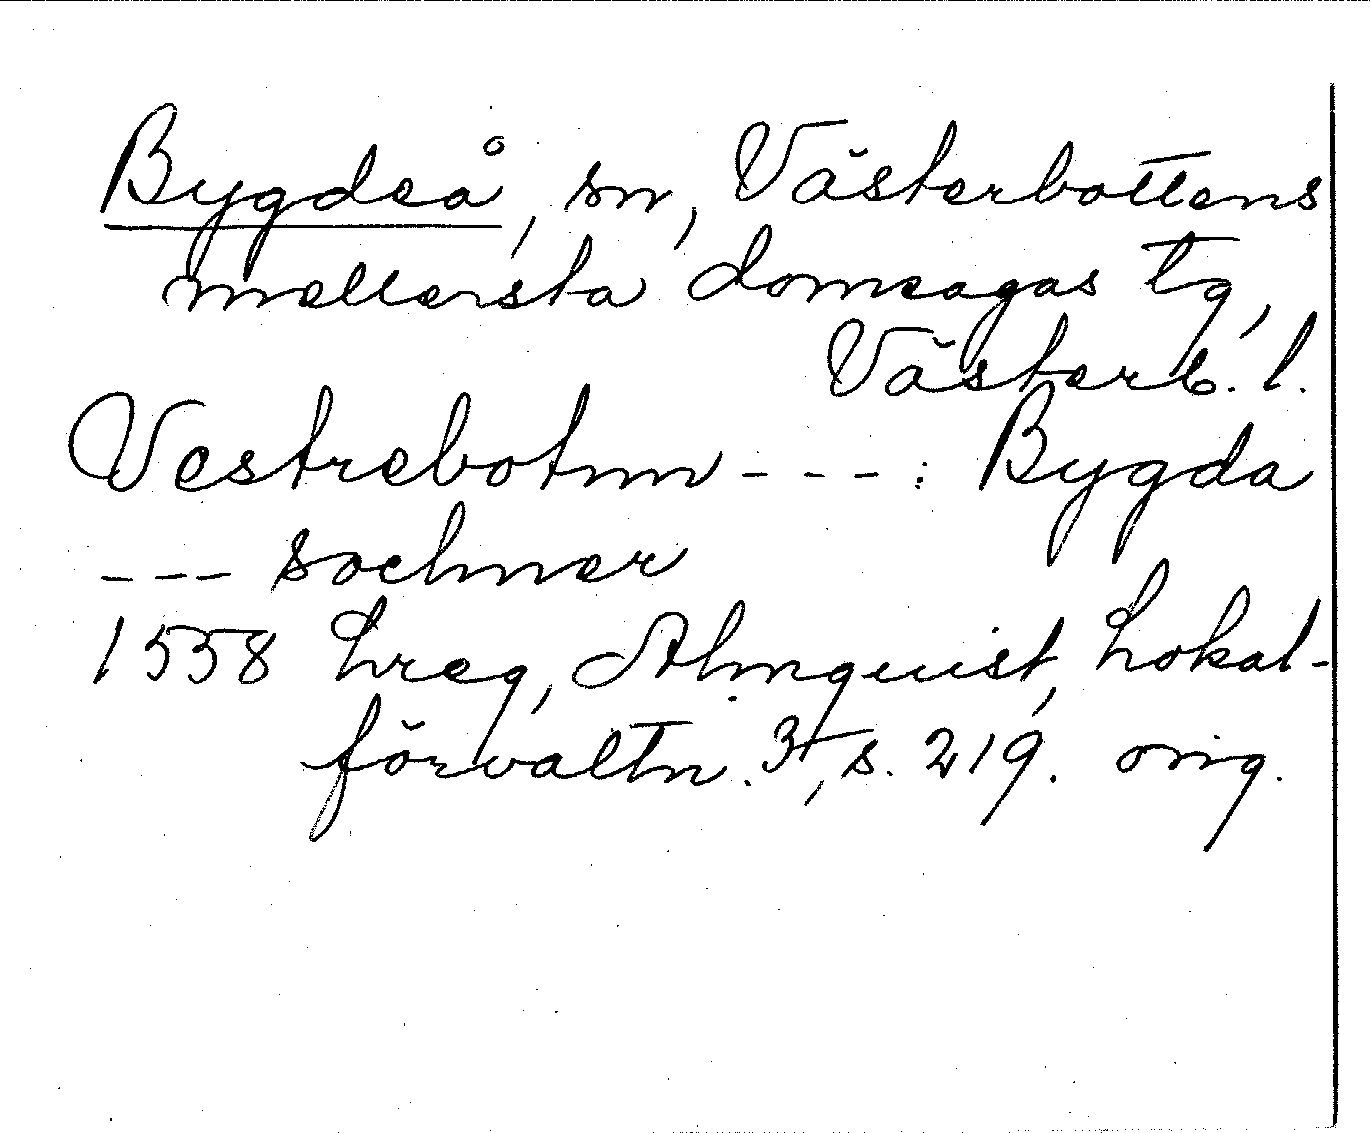 Bygdeå, sn, Västerbottens
mellersta domsagas tg,
Västerb. l.
Vestrebotnn - - - : Bygda
- - - sochner
1558 Lreg, Almquist, Lokal-
förvaltn. 3, s. 219. orig.